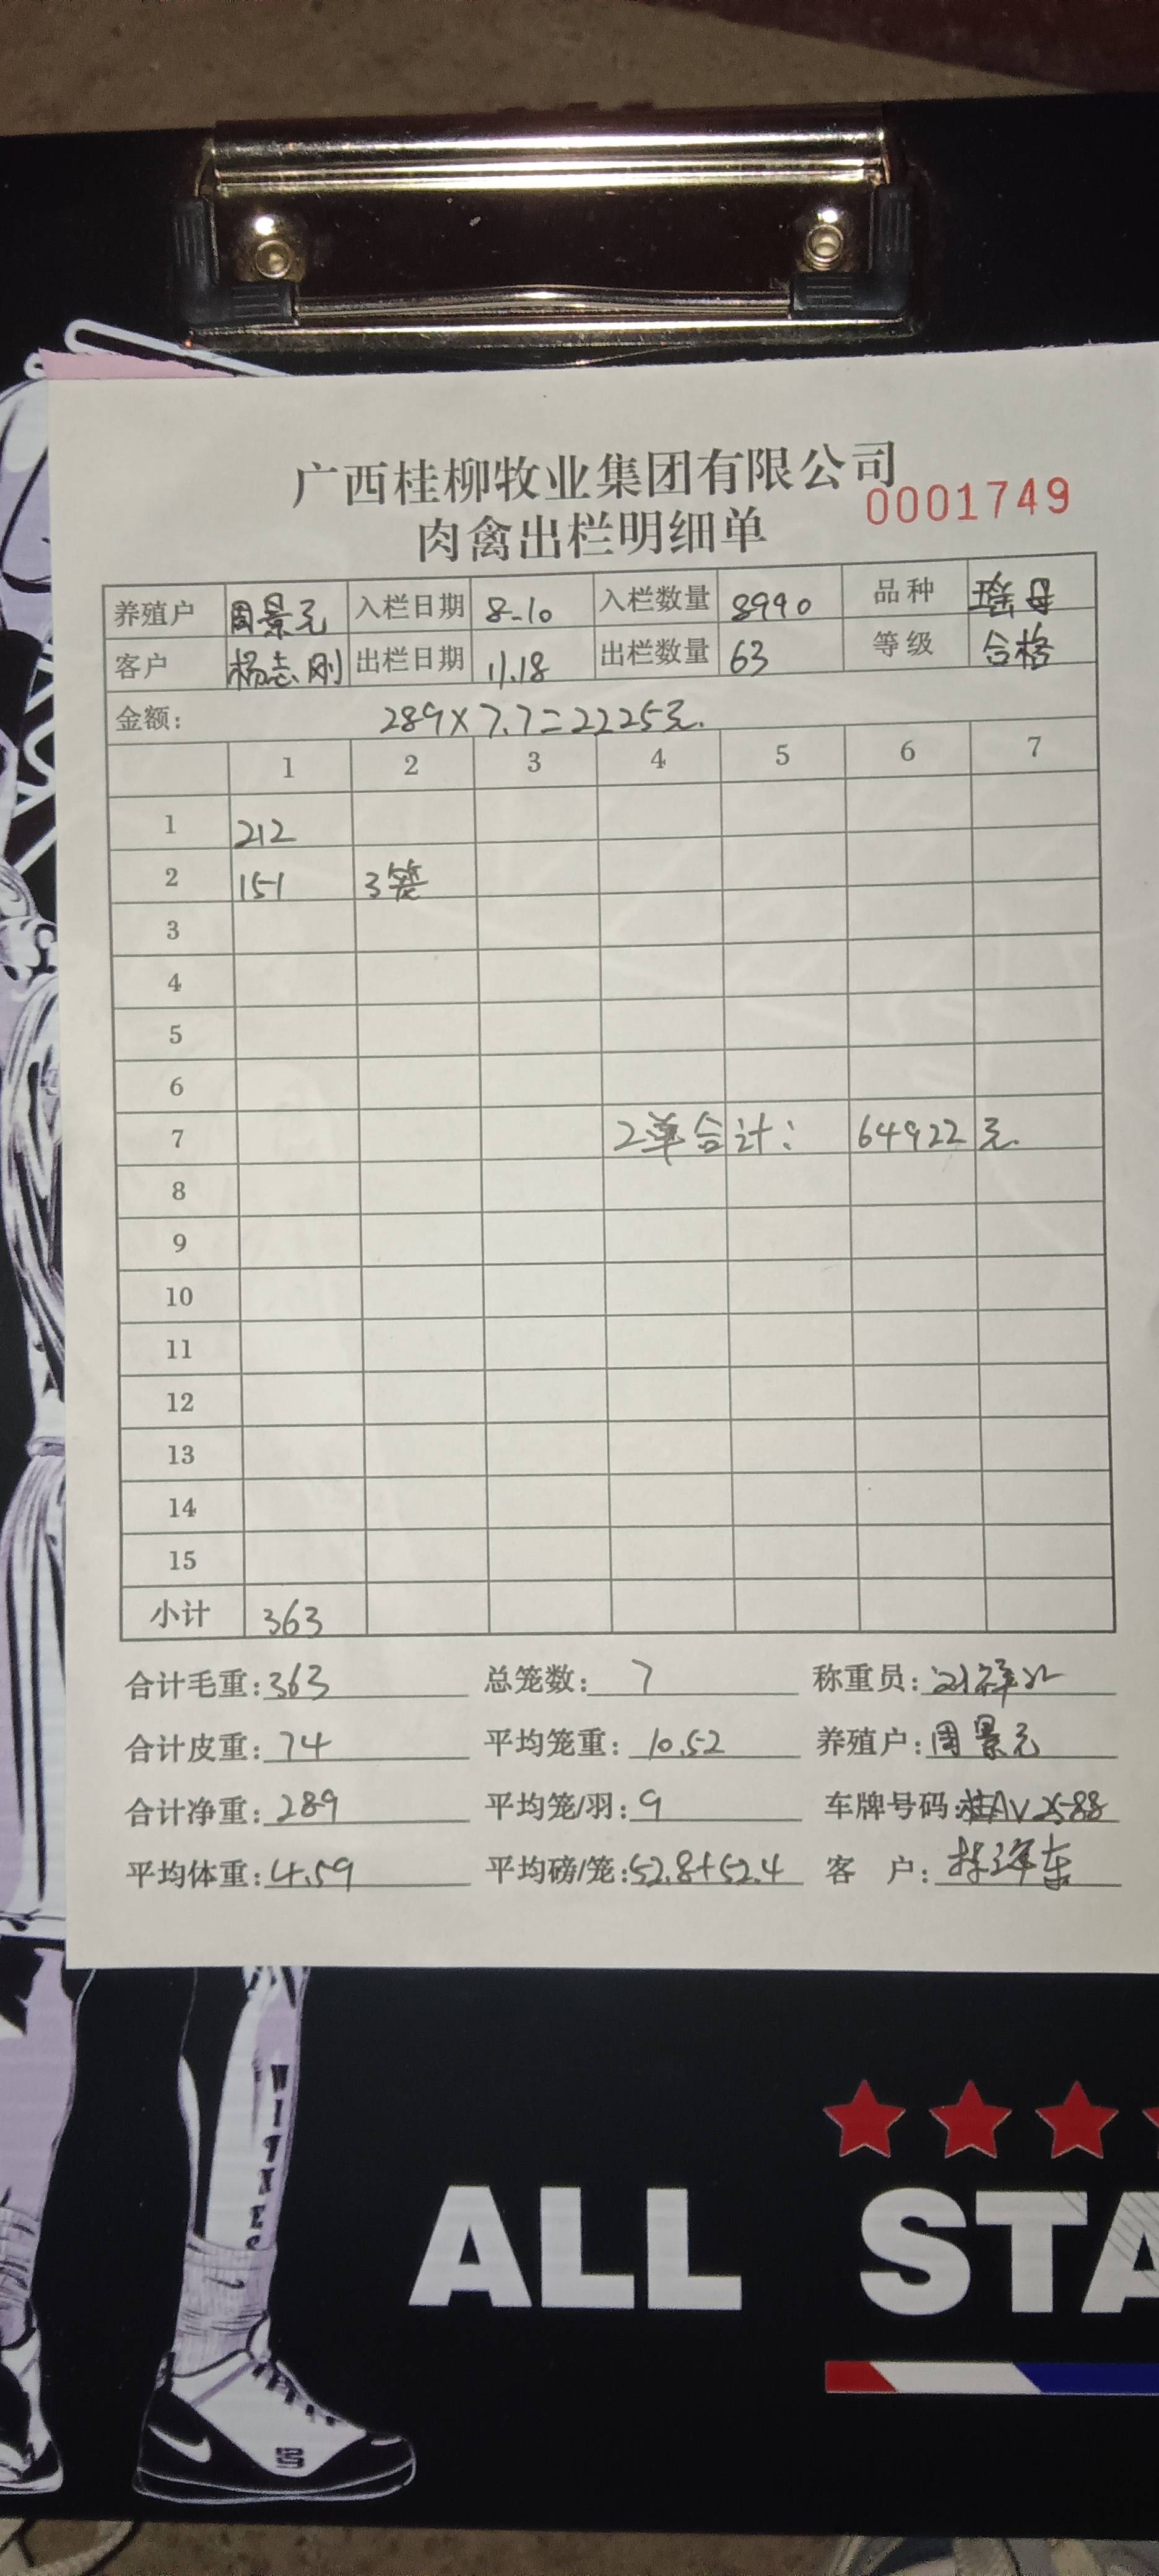 广西桂柳牧业集团有限公司
0001749
肉禽出栏明细单
养殖户 周景元 入栏日期 8-10 入栏数量 8990 品种 瑶母
客户 杨志刚 出栏日期 11.18 出栏数量 63 等级 合格
金额: 289×7.7=2225元.
1 2 3 4 5 6 7
1 212
2 151 3笼
3
4
5
6
7 2单合计: 64922元.
8
9
10
11
12
13
14
15
小计 363
合计毛重:363 总笼数: 7 称重员:
合计皮重:74 平均笼重: 10.52 养殖户:周景元
合计净重:289 平均笼/羽:9 车牌号码:桂AV2588
平均体重:4.59 平均磅/笼:52.8+52.4 客 户:
WITNES
ALL STA